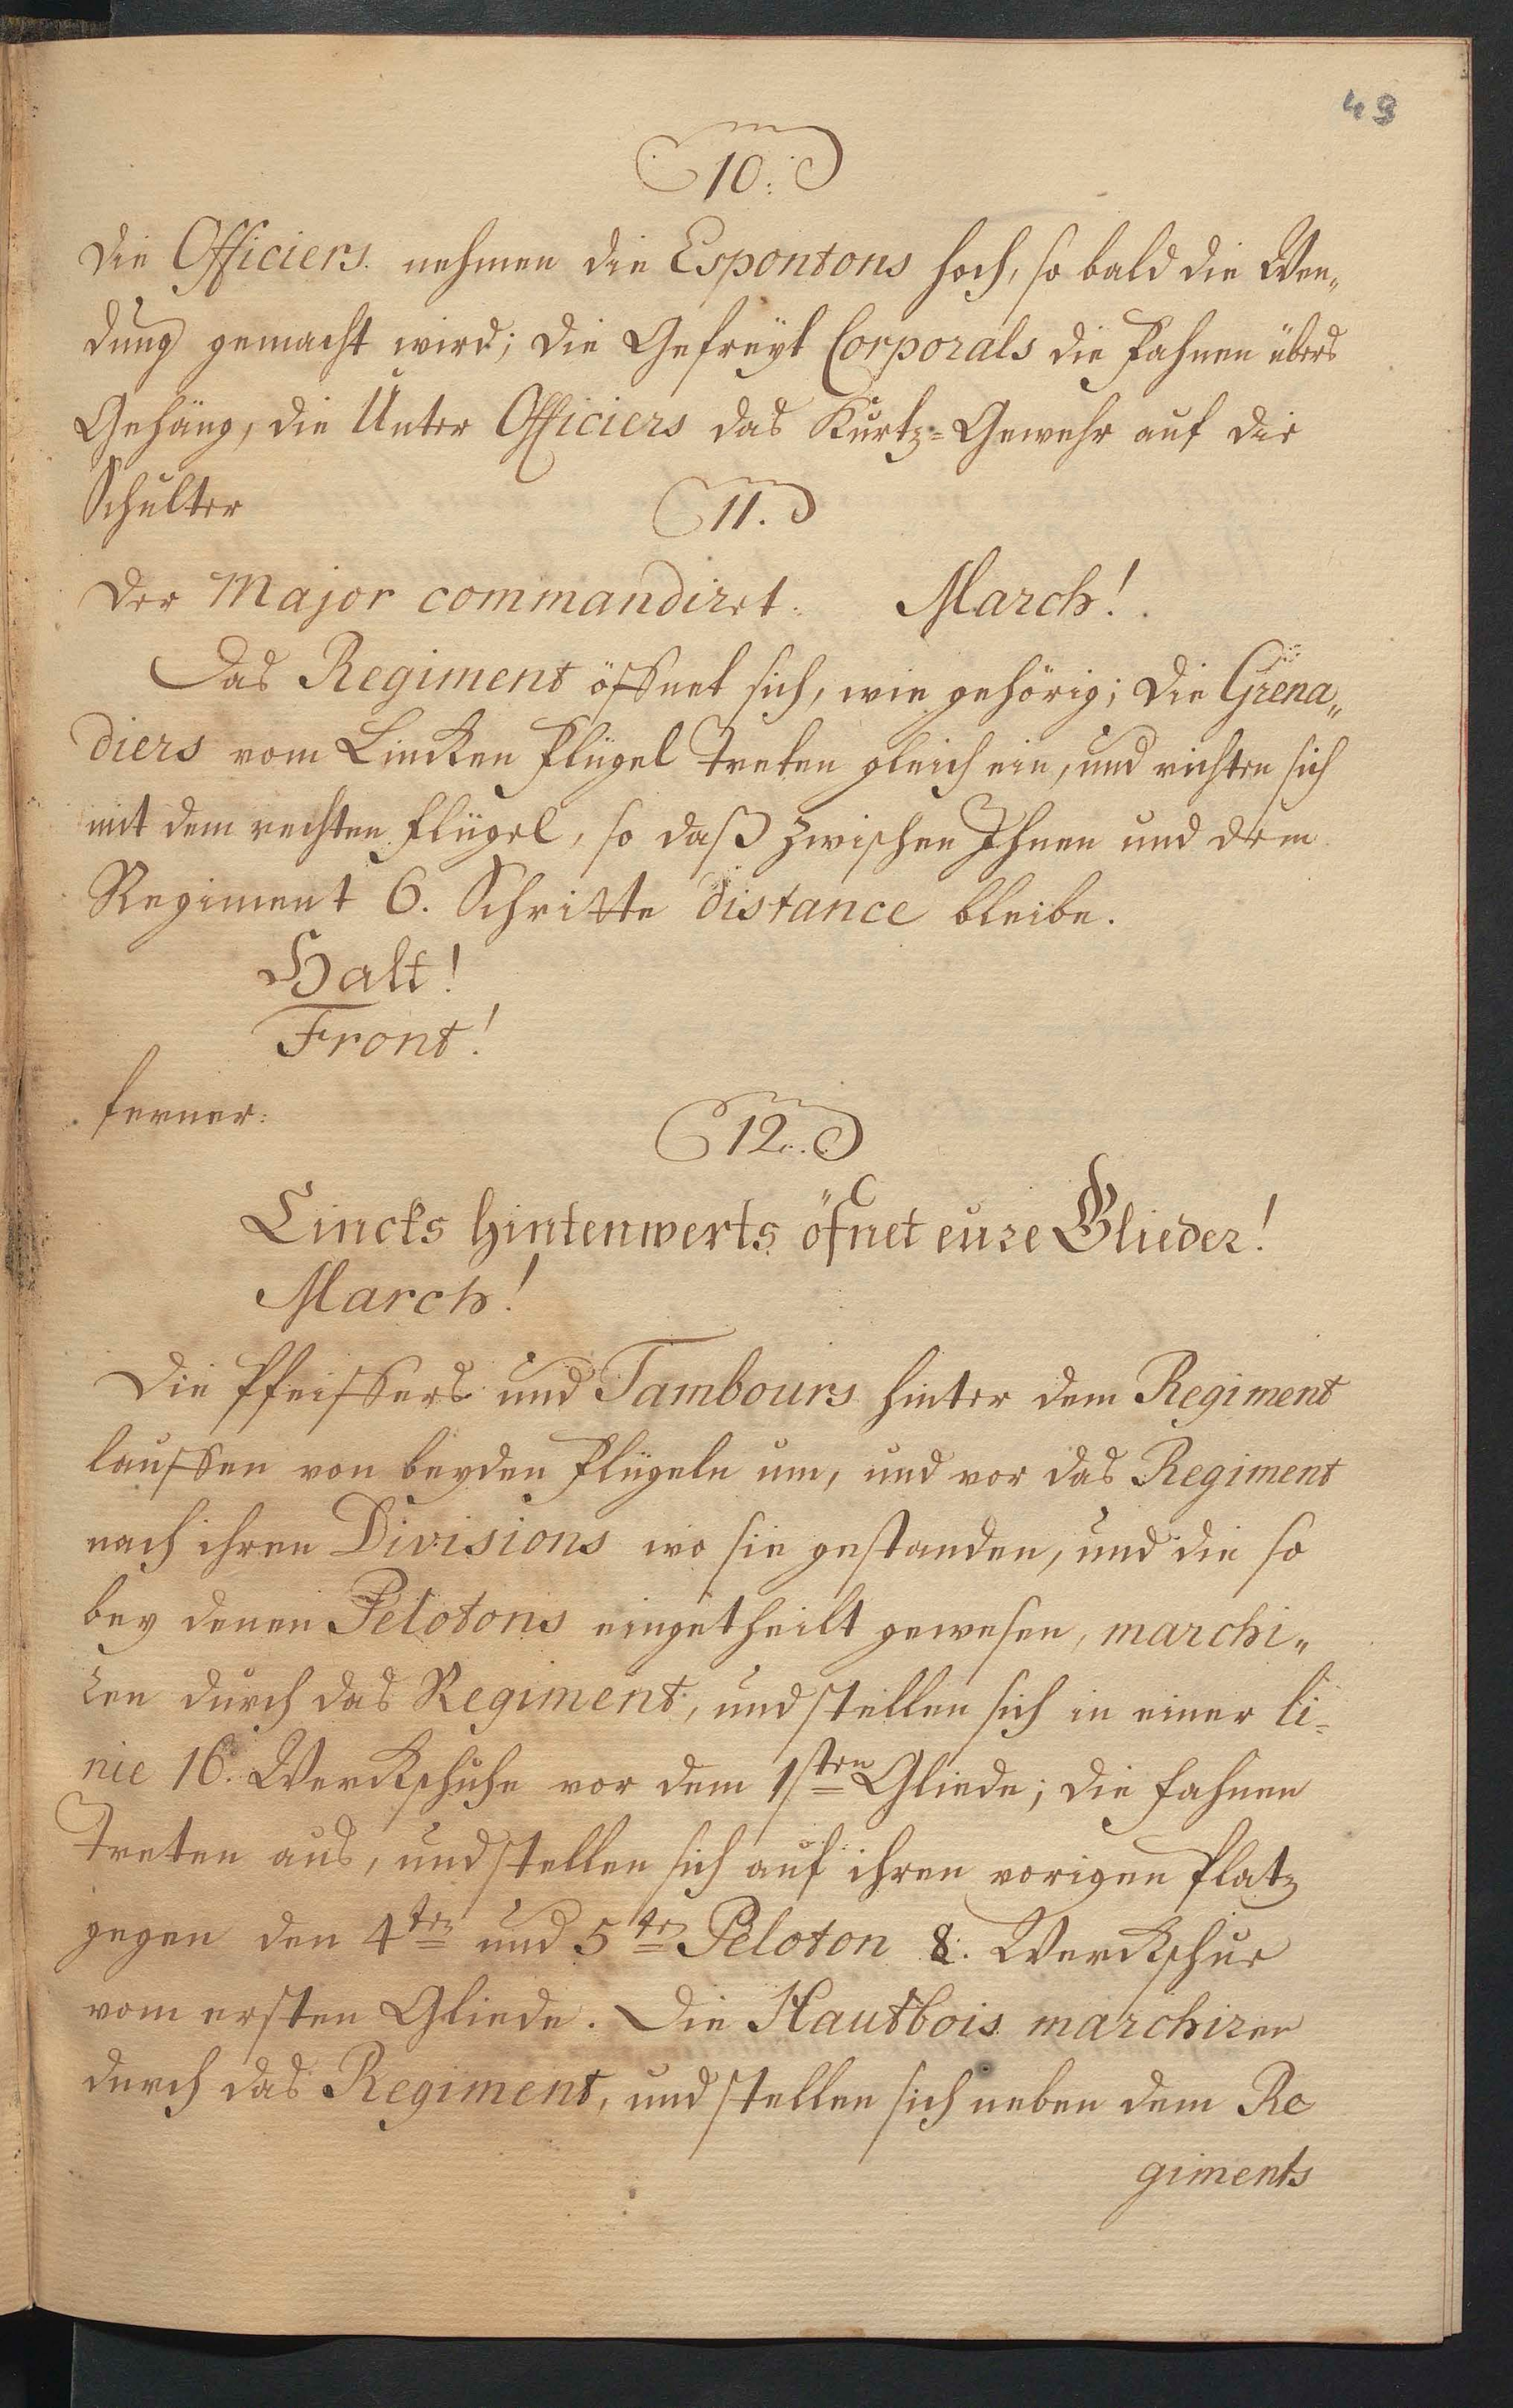 49
10.
Die Officiers nehmen die Espontons hoch, so bald die Wen„
dung gemacht wird; die Gefreyt Corporals die Fahnen übers
Gehäng, die Unter Officiers das Kurtz-Gewehr auf die
Schulter
11.
Der Major commandiret. March!
Das Regiment öffnet sich, wie gehörig; die Grena„
diers vom Lincken Flügel treten gleich ein, und richten sich
mit dem rechten Flügel, so daß zwischen Ihnen und dem
Regiment 6. Schritte distance bleibe.
Halt!
Front!
ferner:
12.
Lincks hintenwerts öfnet eure Glieder!
March!
Die Pfeiffers und Tambours hinter dem Regiment
lauffen von beyden Flügeln um, und vor das Regiment
nach ihren Divisions wo sie gestanden, und die so
bey denen Pelotons eingetheilt gewesen, marchi„
ren durch das Regiment, und stellen sich in einer li-
nie 16. Werckschuhe vor dem 1sten Gliede; die Fahnen
Treten aus, und stellen sich auf ihren vorigen Platz
gegen den 4ten und 5ten Peloton 8. Werckschue
vom ersten Gliede. Die Hautbois marchiren
durch das Regiment, und stellen sich neben dem Re
giments